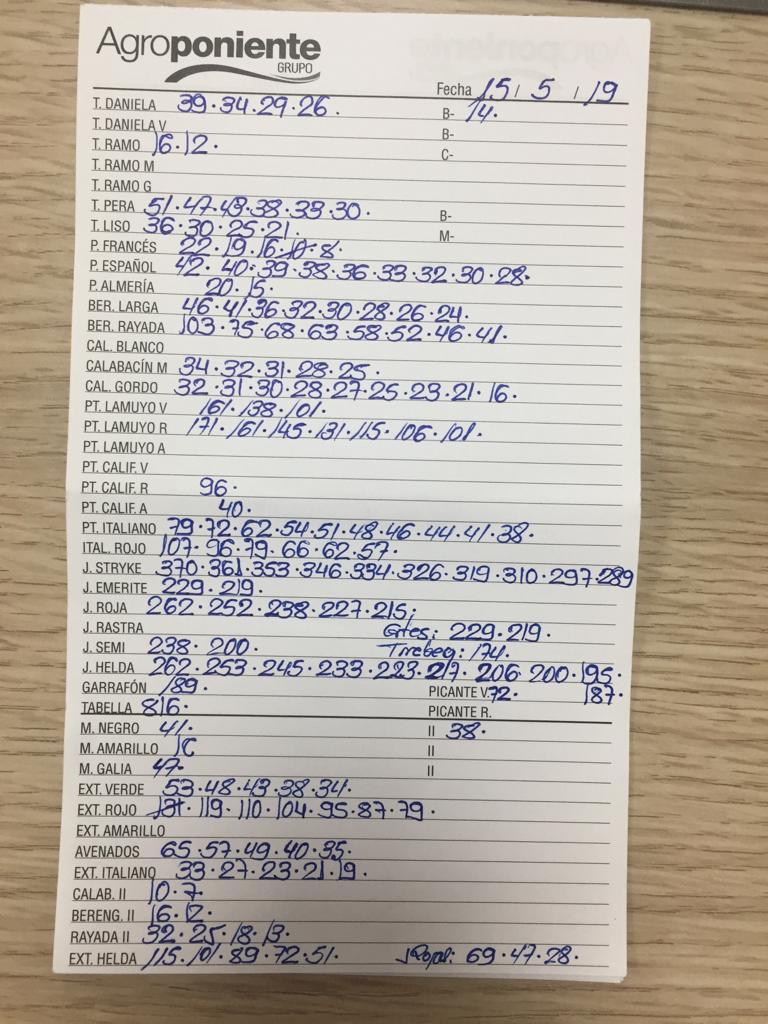 Agroponiente
GRUPO
Fecha 15 / 5 / 19
T. DANIELA 39.34.29.26. B- 14.
T. DANIELA V B-
T. RAMO 16.12. C-
T. RAMO M
T. RAMO G
T. PERA 51.47.43.38.33.30. B-
T. LISO 36.30.25.21. M-
P. FRANCÉS 22.19.16.10.8.
P. ESPAÑOL 42.40.39.38.36.33.32.30.28.
P. ALMERÍA 20.15.
BER. LARGA 46.41.36.32.30.28.26.24.
BER. RAYADA 103.75.68.63.58.52.46.41.
CAL. BLANCO
CALABACÍN M 34.32.31.28.25.
CAL. GORDO 32.31.30.28.27.25.23.21.16.
PT. LAMUYO V 161.138.101.
PT. LAMUYO R 171.161.145.131.115.106.101.
PT. LAMUYO A
PT. CALIF. V
PT. CALIF. R 96.
PT. CALIF. A 40.
PT. ITALIANO 79.72.62.54.51.48.46.44.41.38.
ITAL. ROJO 107.96.79.66.62.57.
J. STRYKE 370.361.353.346.334.326.319.310.297.289
J. EMERITE 229.219.
J. ROJA 262.252.238.227.215.
J. RASTRA 229.219.
J. SEMI 238.200. Tirebeq: 174.
J. HELDA 262.253.245.233.223.217.206.200.195.
GARRAFÓN 189. PICANTE V. 72. 187.
TABELLA 816. PICANTE R.
M. NEGRO 41. II 38.
M. AMARILLO II
M. GALIA 47. II
EXT. VERDE 53.48.43.38.34.
EXT. ROJO 131.119.110.104.95.87.79.
EXT. AMARILLO
AVENADOS 65.57.49.40.35.
EXT. ITALIANO 33.27.23.21.19.
CALAB. II 10.7.
BERENG. II 16.12.
RAYADA II 32.25.18.13.
EXT. HELDA 115.101.89.72.51. 69.47.28.